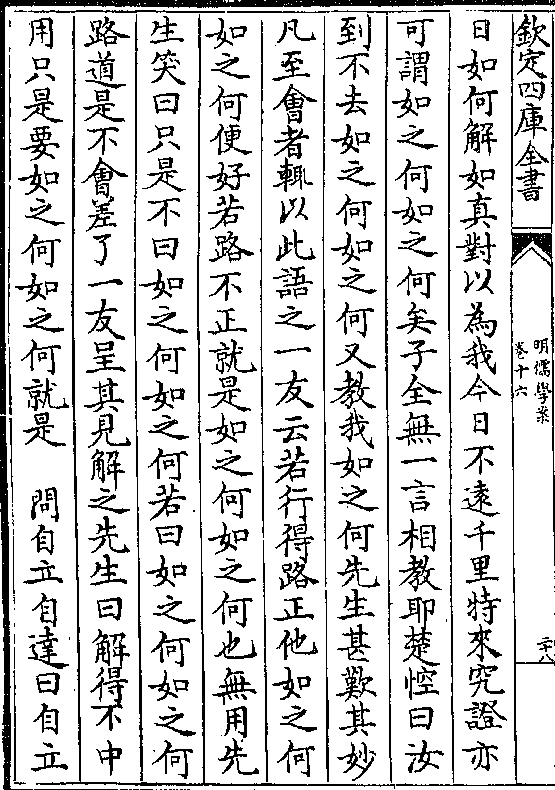 欽定四庫全書
明儒學案
卷十六
二十八
曰如何解如真對以為我今日不遠千里特來究證亦
可謂如之何如之何矣子全無一言相教耶楚侗曰汝
到不去如之何如之何又教我如之何先生甚歎其妙
凡至會者輒以此語之一友云若行得路正他如之何
如之何便好若路不正就是如之何如之何也無用先
生笑曰只是不曰如之何如之何若曰如之何如之何
路道是不會差了一友呈其見解之先生曰解得不中
用只是要如之何如之何就是　問自立自達曰自立